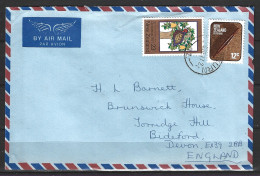 BY AIR MAIL
PAR AVION
NEW ZEALAND
12c
H L Barnett,
Brunswick House,
Torridge Hill
Bideford,
Devon, EX39 2BB
ENGLAND